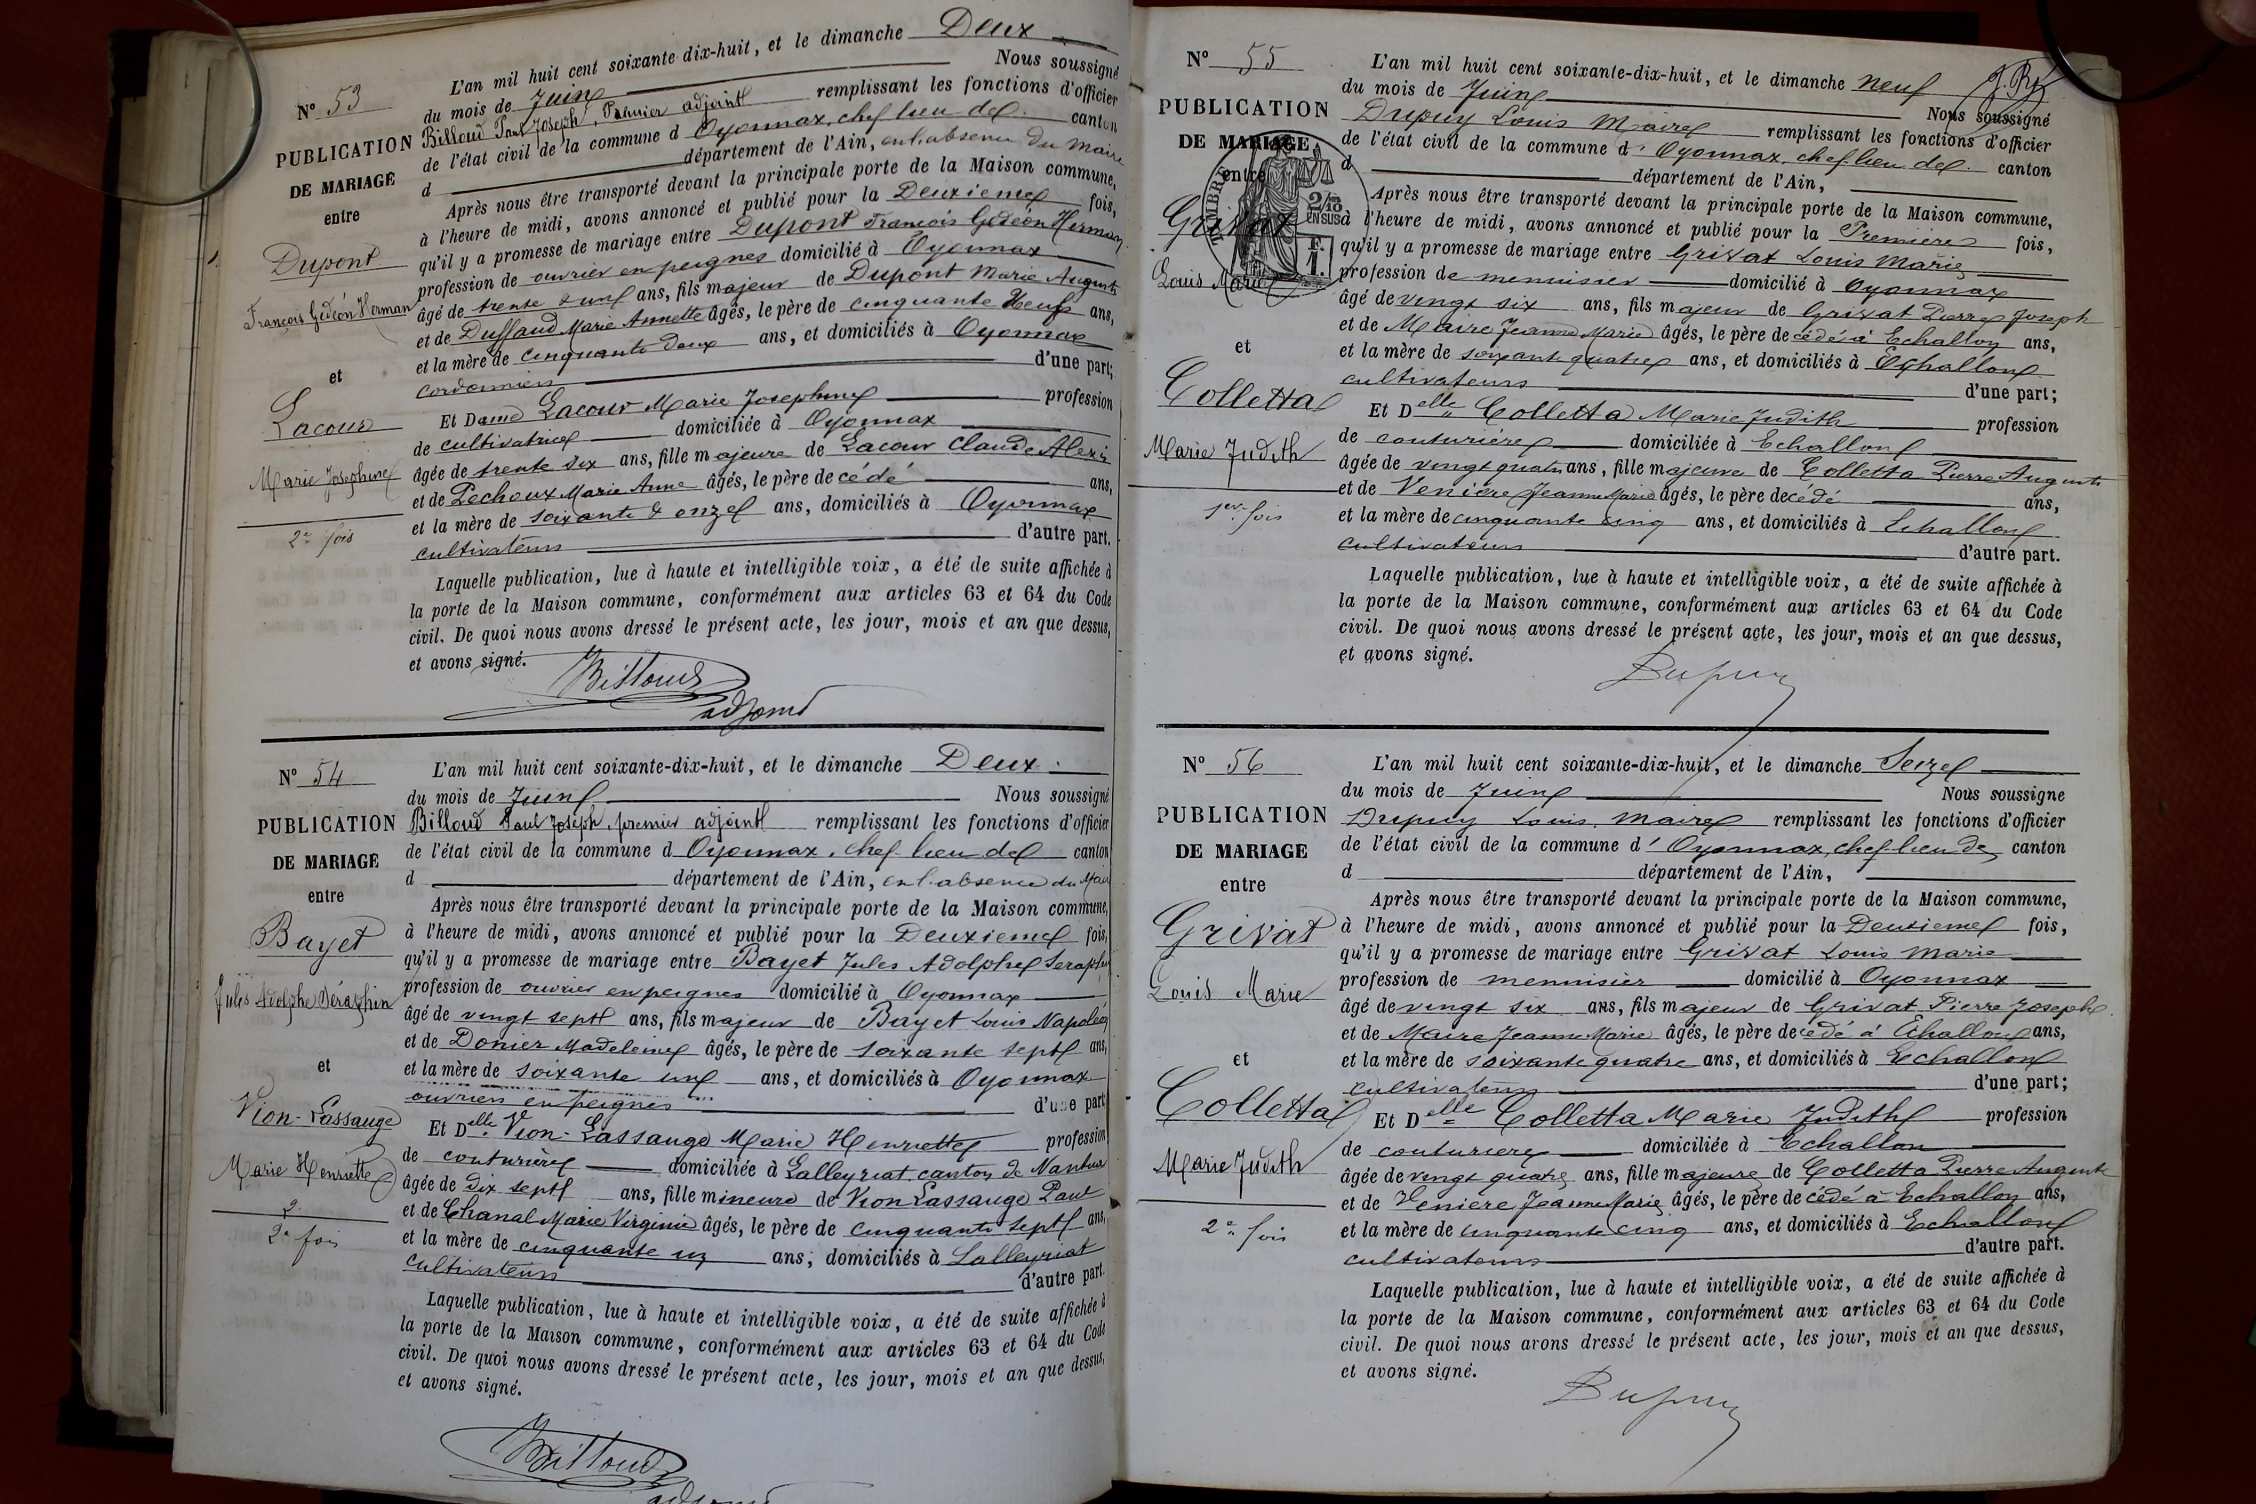 N° 53
PUBLICATION
DE MARIAGE
entre
Dupont
François Gédéon Herman
et
Lacour
Marie Josephine
2e fois
L'an mil huit cent soixante-dix-huit, et le dimanche Deux
du mois de Juin Nous soussigné
Billoud Paul Joseph, Premier adjoint remplissant les fonctions d'officier
de l'état civil de la commune d Oyonnax, chef lieu de canton
d département de l'Ain, en l'absence du Maire
Après nous être transporté devant la principale porte de la Maison commune,
à l'heure de midi, avons annoncé et publié pour la Deuxieme fois,
qu'il y a promesse de mariage entre Dupont François Gédéon Herman
profession de ouvrier en peignes domicilié à Oyonnax
âgé de trente & un ans, fils majeur de Dupont Marie Auguste
et de Duffaud Marie Annette âgés, le père de cinquante Neuf ans,
et la mère de cinquante deux ans, et domiciliés à Oyonnax
cordonniers d'une part;
Et Dame Lacour Marie Josephine profession
de cultivatrice domiciliée à Oyonnax
âgée de trente six ans, fille majeure de Lacour Claude Alexis
et de Pechoux Marie Anne âgés, le père de cédé ans,
et la mère de soixante & onze ans, domiciliés à Oyonnax
cultivateurs d'autre part.
Laquelle publication, lue à haute et intelligible voix, a été de suite affichée à
la porte de la Maison commune, conformément aux articles 63 et 64 du Code
civil. De quoi nous avons dressé le présent acte, les jour, mois et an que dessus,
et avons signé.
Billoud
adjoint
N° 54
PUBLICATION
DE MARIAGE
entre
Bayet
Jules Adolphe Séraphin
et
Vion-Lassauge
Marie Henriette
2
2e fois
L'an mil huit cent soixante-dix-huit, et le dimanche Deux
du mois de Juin Nous soussigné
Billoud Paul Joseph, premier adjoint remplissant les fonctions d'officier
de l'état civil de la commune d Oyonnax, chef-lieu de canton
d département de l'Ain, en l'absence du Maire
Après nous être transporté devant la principale porte de la Maison commune,
à l'heure de midi, avons annoncé et publié pour la Deuxieme fois,
qu'il y a promesse de mariage entre Bayet Jules Adolphe Seraphin
profession de ouvrier en peignes domicilié à Oyonnax
âgé de vingt sept ans, fils majeur de Bayet Louis Napoléon
et de Donier Madeleine âgés, le père de soixante sept ans,
et la mère de soixante un ans, et domiciliés à Oyonnax
ouvriers en peignes d'une part
Et Delle Vion-Lassauge Marie Henriette profession
de couturière domiciliée à Lalleyriat canton de Nantua
âgée de dix sept ans, fille mineure de Vion Lassauge Paul
et de Chanal Marie Virginie âgés, le père de cinquante sept ans,
et la mère de cinquante un ans; domiciliés à Lalleyriat
cultivateurs d'autre part.
Laquelle publication, lue à haute et intelligible voix, a été de suite affichée à
la porte de la Maison commune, conformément aux articles 63 et 64 du Code
civil. De quoi nous avons dressé le présent acte, les jour, mois et an que dessus,
et avons signé.
Billoud
adjoint
N° 55
PUBLICATION
DE MARIAGE
entre
Grivat
Louis Marie
et
Colletta
Marie Judith
1ere fois
TIMBRE
2/10
EN SUS
F.
1.
L'an mil huit cent soixante-dix-huit, et le dimanche neuf
du mois de Juin Nous soussigné
Dupuy Louis Maire remplissant les fonctions d'officier
de l'état civil de la commune d' Oyonnax, chef lieu de canton
d département de l'Ain,
Après nous être transporté devant la principale porte de la Maison commune,
à l'heure de midi, avons annoncé et publié pour la Premiere fois,
qu'il y a promesse de mariage entre Grivat Louis Marie
profession de menuisier domicilié à Oyonnax
âgé de vingt six ans, fils majeur de Grivat Pierre Joseph
et de Maire Jeanne Marie âgés, le père de cédé à Echallon ans,
et la mère de soixante quatre ans, et domiciliés à Echallon
cultivateurs d'une part;
Et Delle Colletta Marie Judith profession
de couturière domiciliée à Echallon
âgée de vingt quatre ans, fille majeure de Colletta Pierre Auguste
et de Veniere Jeanne Marie âgés, le père de cédé ans,
et la mère de cinquante cinq ans, et domiciliés à Echallon
cultivateurs d'autre part.
Laquelle publication, lue à haute et intelligible voix, a été de suite affichée à
la porte de la Maison commune, conformément aux articles 63 et 64 du Code
civil. De quoi nous avons dressé le présent acte, les jour, mois et an que dessus,
et avons signé.
Dupuy
N° 56
PUBLICATION
DE MARIAGE
entre
Grivat
Louis Marie
et
Colletta
Marie Judith
2e fois
L'an mil huit cent soixante-dix-huit, et le dimanche Seize
du mois de Juin Nous soussigné
Dupuy Louis, Maire remplissant les fonctions d'officier
de l'état civil de la commune d' Oyonnax, chef-lieu de canton
d département de l'Ain,
Après nous être transporté devant la principale porte de la Maison commune,
à l'heure de midi, avons annoncé et publié pour la Deuxieme fois,
qu'il y a promesse de mariage entre Grivat Louis Marie
profession de menuisier domicilié à Oyonnax
âgé de vingt six ans, fils majeur de Grivat Pierre Joseph
et de Maire Jeanne Marie âgés, le père de cédé à Echallon ans,
et la mère de soixante quatre ans, et domiciliés à Echallon
cultivateurs d'une part;
Et Delle Colletta Marie Judith profession
de couturiere domiciliée à Echallon
âgée de vingt quatre ans, fille majeure de Colletta Pierre Auguste
et de Veniere Jeanne Marie âgés, le père de cédé à Echallon ans,
et la mère de cinquante cinq ans, et domiciliés à Echallon
cultivateurs d'autre part.
Laquelle publication, lue à haute et intelligible voix, a été de suite affichée à
la porte de la Maison commune, conformément aux articles 63 et 64 du Code
civil. De quoi nous avons dressé le présent acte, les jour, mois et an que dessus,
et avons signé.
Dupuy